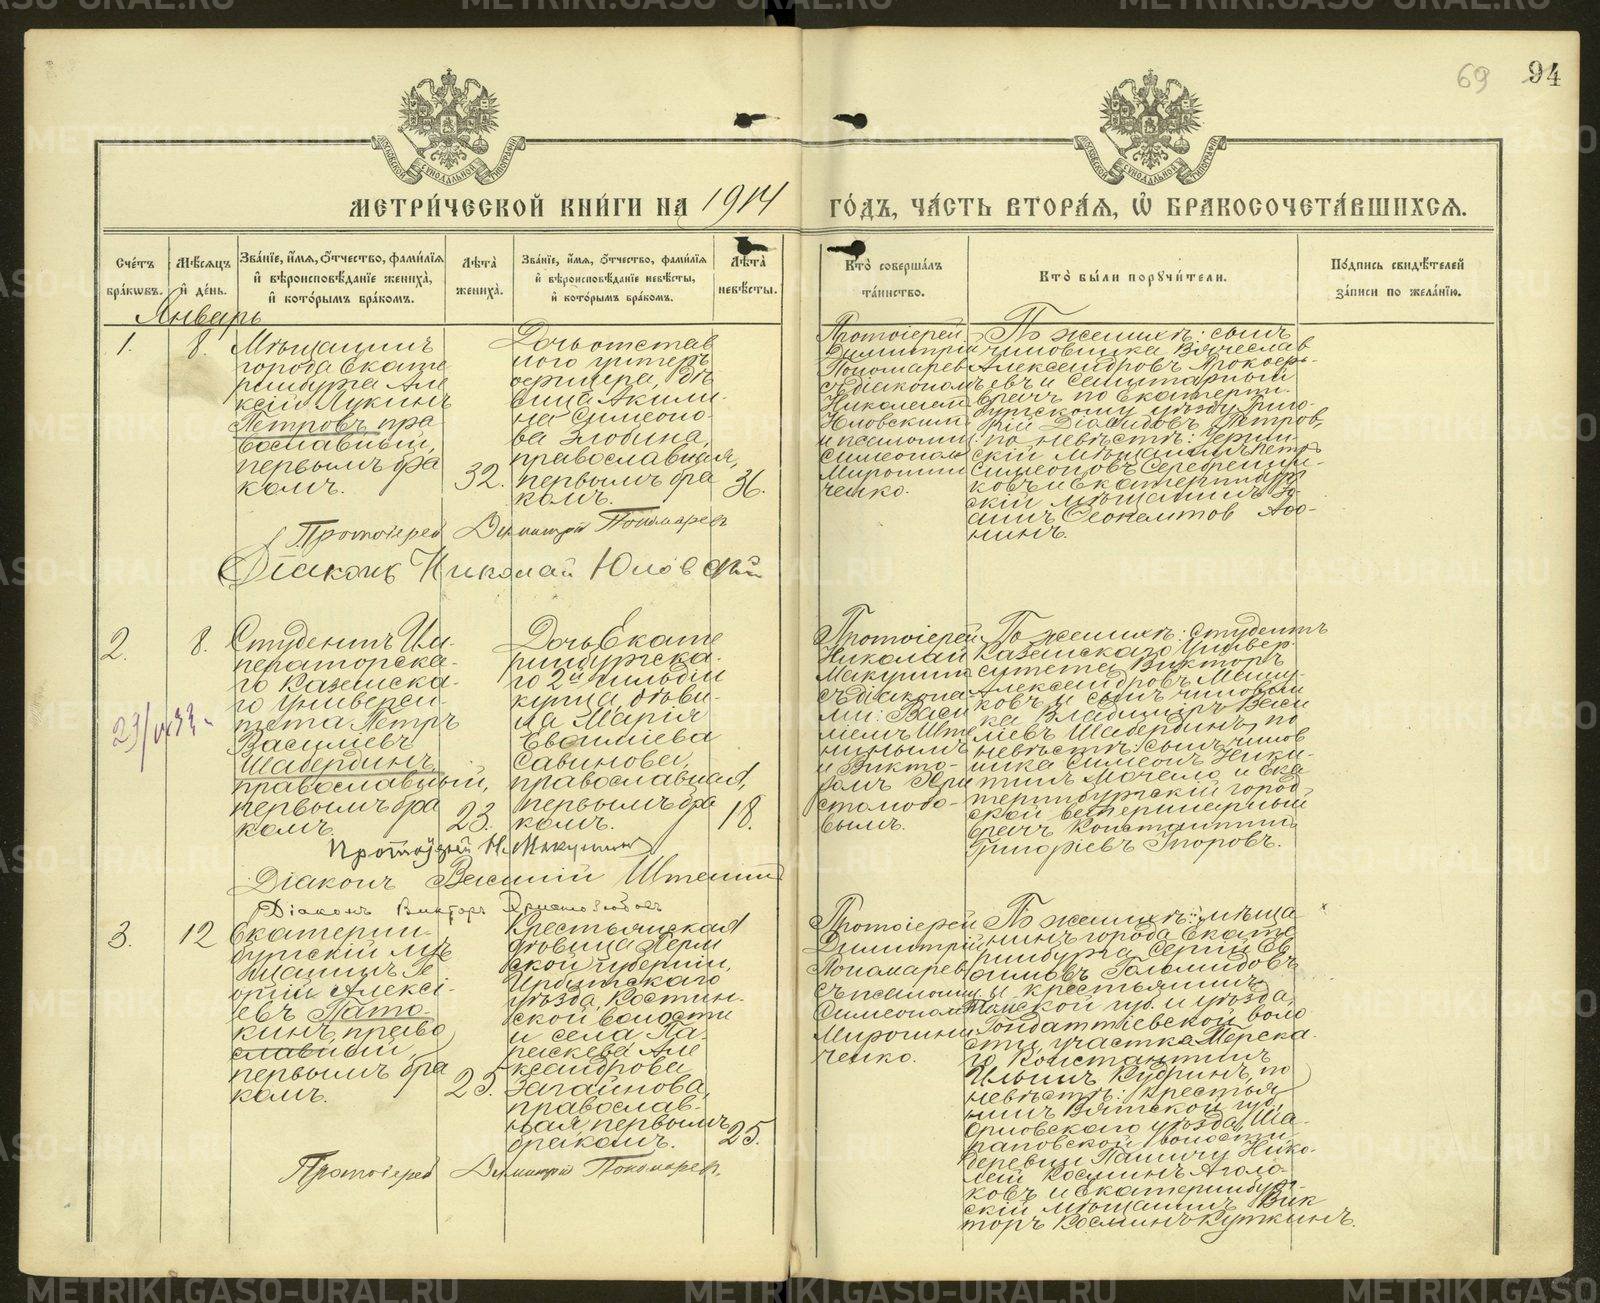 69 94
МОСКОВСКОЙ СѴНОДАЛЬНОЙ ТИПОГРАФІИ
МОСКОВСКОЙ СѴНОДАЛЬНОЙ ТИПОГРАФІИ
МЕТРИ́ЧЕСКОЙ КНИ́ГИ НА 1914 ГО́ДЪ, ЧА́СТЬ ВТОРА́Я, Ѽ БРАКОСОЧЕТА́ВШИХСЯ.
Сче́тъ
бра́кωвъ.
Мѣ́сяцъ
и҆ де́нь.
Зва́нїе, и҆́мя, ѻ҆́тчество, фами́лїя
и҆ вѣроисповѣ́данїе жениха̀,
и҆ кото́рымъ бра́комъ.
Лѣ́та
жениха̀.
Зва́нїе, и҆́мя, ѻ҆́тчество, фами́лїя
и҆ вѣроисповѣ́данїе невѣ́сты,
и҆ кото́рымъ бра́комъ.
Лѣ́та
невѣ́сты.
Кто̀ соверша́лъ
та́инство.
Кто̀ бы́ли порꙋчи́тели.
По́дпись свидѣ́телей
за́писи по жела́нїю.
Январь
1.
8.
Мѣщанинъ
города Екате
ринбурга Але
ксій Лукинъ
Петровъ, пра
вославный,
первымъ бра
комъ.
32.
Дочь отстав
ного унтеръ
офицера, дѣ
вица Акили-
на Симеоно-
ва Злобина,
православная,
первымъ бра
комъ.
36.
Протоіерей
Димитрій
Пономаревъ
съ діакономъ
Николаемъ
Юловскимъ
и псаломщ.
Симеономъ
Мирошни
ченко.
По женихѣ: сынъ
чиновника Вячеслав
Александровъ Прокофь-
евъ и санитарный
врачъ по Екатерин-
бургскому уѣзду Григо-
рій Діомидовъ Петровъ,
по невѣстѣ: Перм-
скій мѣщанинъ Петръ
Симеоновъ Серебрени-
ковъ и Екатеринбург
скій мѣщанинъ
Афо-
нинъ.
Протоіерей Димитрій Пономаревъ
Діаконъ Николай Юловскій
2.
8.
Студентъ Им-
ператорска-
го Казанска-
го Универси-
тета Петръ
Василіевъ
Шабердинъ,
православный,
первымъ бра
комъ.
23.
Дочь Екате
ринбургска-
го 2й гильдіи
купца, дѣви-
ца Марія
Евфиміева
Савинова,
православная,
первымъ бра
комъ.
18.
Протоіерей
Николай
Макушинъ
съ діакона-
ми: Васи
ліемъ Ште
нинымъ
и Викто-
ромъ Хри
столюбо-
вымъ.
По женихѣ: студентъ
Казанскаго Универ-
ситета Викторъ
Александровъ Мишу-
ковъ и сынъ чиновни
ка Владиміръ Васи
ліевъ Шабердинъ, по
невѣстѣ: сынъ чинов
ника Симеонъ Ники-
тинъ и Ека
теринбургскій город
ской ветеринарный
врачъ Константинъ
Григоріевъ
Протоіерей Н. Макушинъ
Діаконъ Василій Штенинъ
Діаконъ Викторъ Христолюбовъ
3.
12
Екатерин-
бургскій мѣ
щанинъ Ге
оргій Алексі-
евъ Пато-
кинъ, право
славный,
первымъ бра
комъ.
25.
Крестьянская
дѣвица Перм
ской губерніи,
Ирбитскаго
уѣзда, Костин-
ской волости
и села Па-
раскева Але
ксандрова
Загайнова,
православ-
ная, первымъ
бракомъ.
25.
Протоіерей
Димитрій
Пономаревъ
съ псаломщ.
Симеономъ
Мирошни
ченко.
По женихѣ: мѣща-
нинъ города Екате
ринбурга Сергій Ев
фимовъ Голомидовъ
и крестьянинъ
Томской губ. и уѣзда,
Гондаттіевской воло
сти, участка
го Константинъ
Ильинъ Кудринъ, по
невѣстѣ: крестья-
нинъ Вятской губ.,
Орловскаго уѣзда, Ша-
рановской волости
деревни Нико-
лай Косминъ
ковъ и Екатеринбург-
скій мѣщанинъ Вик
торъ Косминъ Куткинъ.
Протоіерей Димитрій Пономаревъ.
METRIKI.GASO-URAL.RU